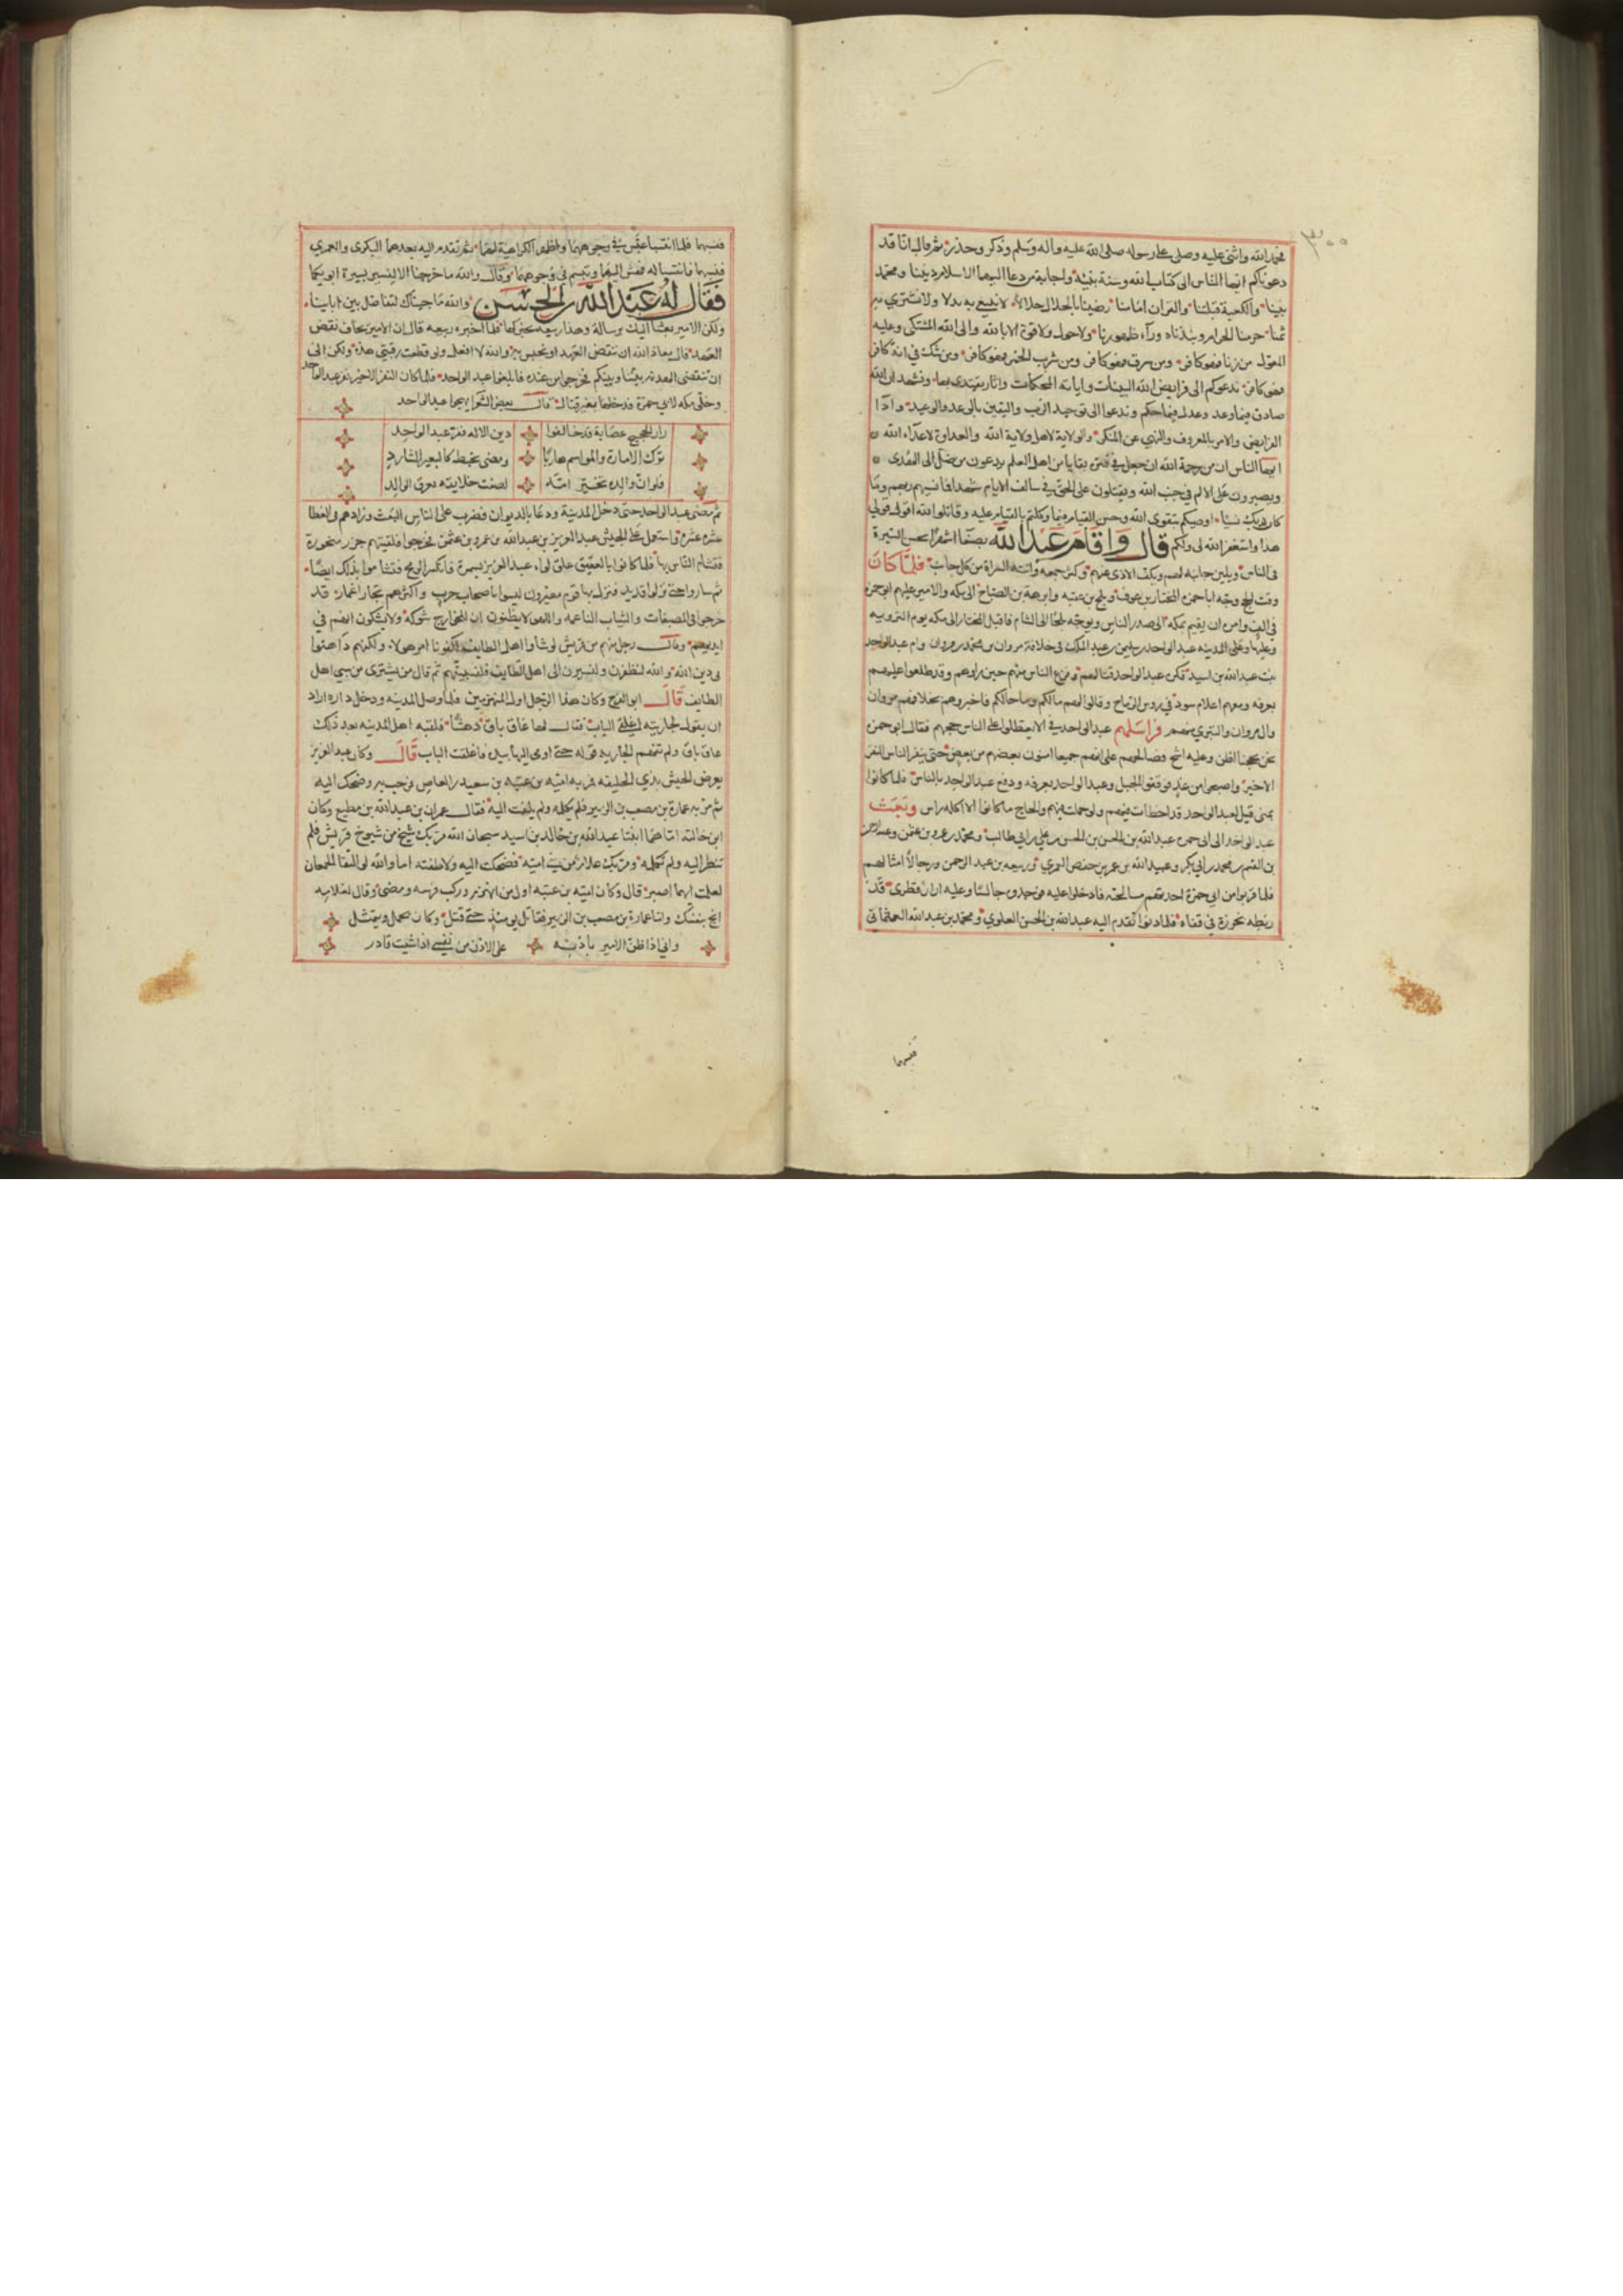 ٣٠٠
فحمد الله واثنى عليه وصلى على رسوله صلى الله عليه واله وسلم وذكر وحذر ثم قال انا قد
دعوناكم ايها الناس الى كتاب الله وسنة نبيه واجابة من دعا اليهما الاسلام ديننا ومحمد
نبينا والكعبة قبلتنا والقران امامنا رضينا بالحلال حلالا لا نبيع به بدلا ولا نشتري به
ثمنا حرمنا الحرام ونبذناه وراء ظهورنا ولا حول ولا قوة الا بالله والى الله المشتكى وعليه
المعول من زنا فهو كافر ومن سرق فهو كافر ومن شرب الخمر فهو كافر ومن شك في انه كافر
فهو كافر ندعوكم الى فرايض الله البينات واياته المحكمات واثار يهتدى بها ونشهد ان الله
صادق فيما وعد وعدل فيما حكم وندعوا الى توحيد الرب واليقين بالوعد والوعيد واداء
الفرايض والامر بالمعروف والنهي عن المنكر والولاية لاهل ولاية الله والعداوة لاعداء الله
ايها الناس ان من رحمة الله ان جعل في كل فترة بقايا من اهل العلم يدعون من ضل الى الهدى
ويصبرون على الالم في جنب الله ويقتلون على الحق في سالف الايام شهدا فما نسيهم ربهم وما
كان ربك نسيا اوصيكم بتقوى الله وحسن القيام فيما وكلتم بالقيام عليه وقاتلوا لله اقول قولي
هذا واستغفر الله لي ولكم قال واقام عبد الله بصنعا اشهرا بحسن السيرة
في الناس ويلين جانبه لهم ويكف الاذى عنهم وكثر جمعه واتته الشراة من كل جانب فلما كان
وقت الحج وجه ابا حمزة المختار بن عوف وبلج بن عتبه وابرهة بن الصباح الى مكه والامير عليهم ابو حمزة
في الف وامره ان يقيم بمكه الى صدر الناس ويوجه بلجا الى الشام فاقبل المختار الى مكه يوم الترويه
وعليها وعلى المدينه عبد الواحد بن سليمن بن عبد الملك في خلافة مروان بن محمد بن مروان وام عبد الواحد
بنت عبد الله بن اسيد فكره عبد الواحد قتالهم وفزع الناس منهم حين راوهم وقد طلعوا عليهم
بعرفه ومعهم اعلام سود في روس الرماح وقالوا لهم مالكم وما حالكم فاخبروهم بخلافهم مروان
وال مروان والتبري منهم فراسلهم عبد الواحد في الا يعطلوا على الناس حجهم فقال ابو حمزة
نحن بحجنا اظن وعليه اشح فصالحهم على انهم جميعا امنون بعضهم من بعض حتى ينفر الناس النفر
الاخير واصبحوا من غد فوقفوا بالجبل وعبد الواحد بعرفه ودفع عبد الواحد بالناس فلما كانوا
بمنى قيل لعبد الواحد قد اخطات فيهم ولو حملت عليهم والحاج ما كانوا الا اكله راس وبعث
عبد الواحد الى ابي حمزه عبد الله بن الحسن بن الحسن بن علي بن ابي طالب ومحمد بن عمرو بن عثمن وعبد الرحمن
بن القسم بن محمد بن ابي بكر وعبيد الله بن عمر بن حفص العمري وربيعه بن عبد الرحمن ورجالا امثالهم
فلما قربوا من ابي حمزة اخذتهم مسالحه فادخلوا عليه فوجدوه جالسا وعليه ازار قطري قد
ربطه بحوزة في قفاه فلما دنوا تقدم اليه عبد الله بن الحسن العلوي ومحمد بن عبد الله العثماني
فنسبهما
فنسبهما فلما انتسبا عبس في وجوههما واظهر الكراهية لهما ثم تقدم اليه بعدهما البكري والعمري
فنسبهما فانتسبا له فهش اليهما وتبسم في وجوههما وقال والله ما خرجنا الا لنسير بسيرة ابويكما
فقال له عبد الله بن الحسن والله ما جيناك لتفاضل بين اباينا
ولكن الامير بعثنا اليك برسالة وهذا ربيعه يخبركها فلما اخبره ربيعه قال ان الامير يخاف نقض
العهد قال معاذ الله ان ننقض العهد او نحبس به والله لا افعل ولو قطعت رقبتي هذه ولكن الى
ان تنقضي الهدنه بيننا وبينكم فخرجوا من عنده فابلغوا عبد الواحد فلما كان النفر الاخير نفر عبد الواحد
وخلى مكه لابي حمزة فدخلها بغير قتال قال بعض الشعرا يهجوا عبد الواحد
زار الحجيج عصابة قد خالفوا دين الاله ففر عبد الواحد
ترك الامارة والمواسم هاربا ومضى يخبط كالبعير الشارد
فلو ان والده تخير امه لصفت خلايقه بعرق الوالد
ثم مضى عبد الواحد حتى دخل المدينة ودعا بالديوان فضرب على الناس البعث وزادهم في العطا
عشره عشره واستعمل على الجيش عبد العزيز بن عبد الله بن عمرو بن عثمن فخرجوا فلقيتهم جزر منحورة
فتشام الناس بها فلما كانوا بالعقيق علق لواء عبد العزيز بسمرة فانكسر الرمح فتشاموا بذلك ايضا
ثم ساروا حتى نزلوا قديد فنزل بها قوم مغترون ليسوا باصحاب حرب واكثرهم تجار اغمار قد
خرجوا في المصبغات والثياب الناعمه واللهو لا يظنون ان للخوارج شوكة ولا يشكون انهم في
ايديهم وقال رجل منهم من قريش لو شا اهل الطايف لكفونا امر هولاء ولكنهم داهنوا
في دين الله والله لنظفرن ولنسيرن الى اهل الطايف فلنسبينهم ثم قال من يشتري من سبي اهل
الطايف قال ابو الفرج وكان هذا الرجل اول المنهزمين فلما وصل المدينه ودخل داره اراد
ان يقول لجاريته اغلقي الباب فقال لها غاق باق دهشا فلقبه اهل المدينه بعد ذلك
غاق باق ولم تفهم الجاريه قوله حتى اوى اليها بيده فاغلقت الباب قال وكان عبد العزيز
يعرض الجيش بذي الحليفه فمر به اميه بن عتبه بن سعيد بن العاص فرحب به وضحك اليه
ثم مر به عمارة بن مصعب بن الزبير فلم يكلمه ولم يلتفت اليه فقال عمران بن عبد الله بن مطيع وكان
ابن خالته اماهما ابنتا عبد الله بن خالد بن اسيد سبحان الله مر بك شيخ من شيوخ قريش فلم
تنظر اليه ولم تكلمه ومر بك غلام من بني اميه فضحكت اليه ولاطفته اما والله لو التقا الجمعان
لعلمت ايهما اصبر قال وكان اميه بن عتبه اول من انهزم وركب فرسه ومضى وقال لغلامه
انج بنفسك واما عمارة بن مصعب بن الزبير فقاتل يومئذ حتى قتل وكان يحمل ويتمثل
واني اذا ظن الامير باذنه على الاذن من نفسي اذا شيت قادر